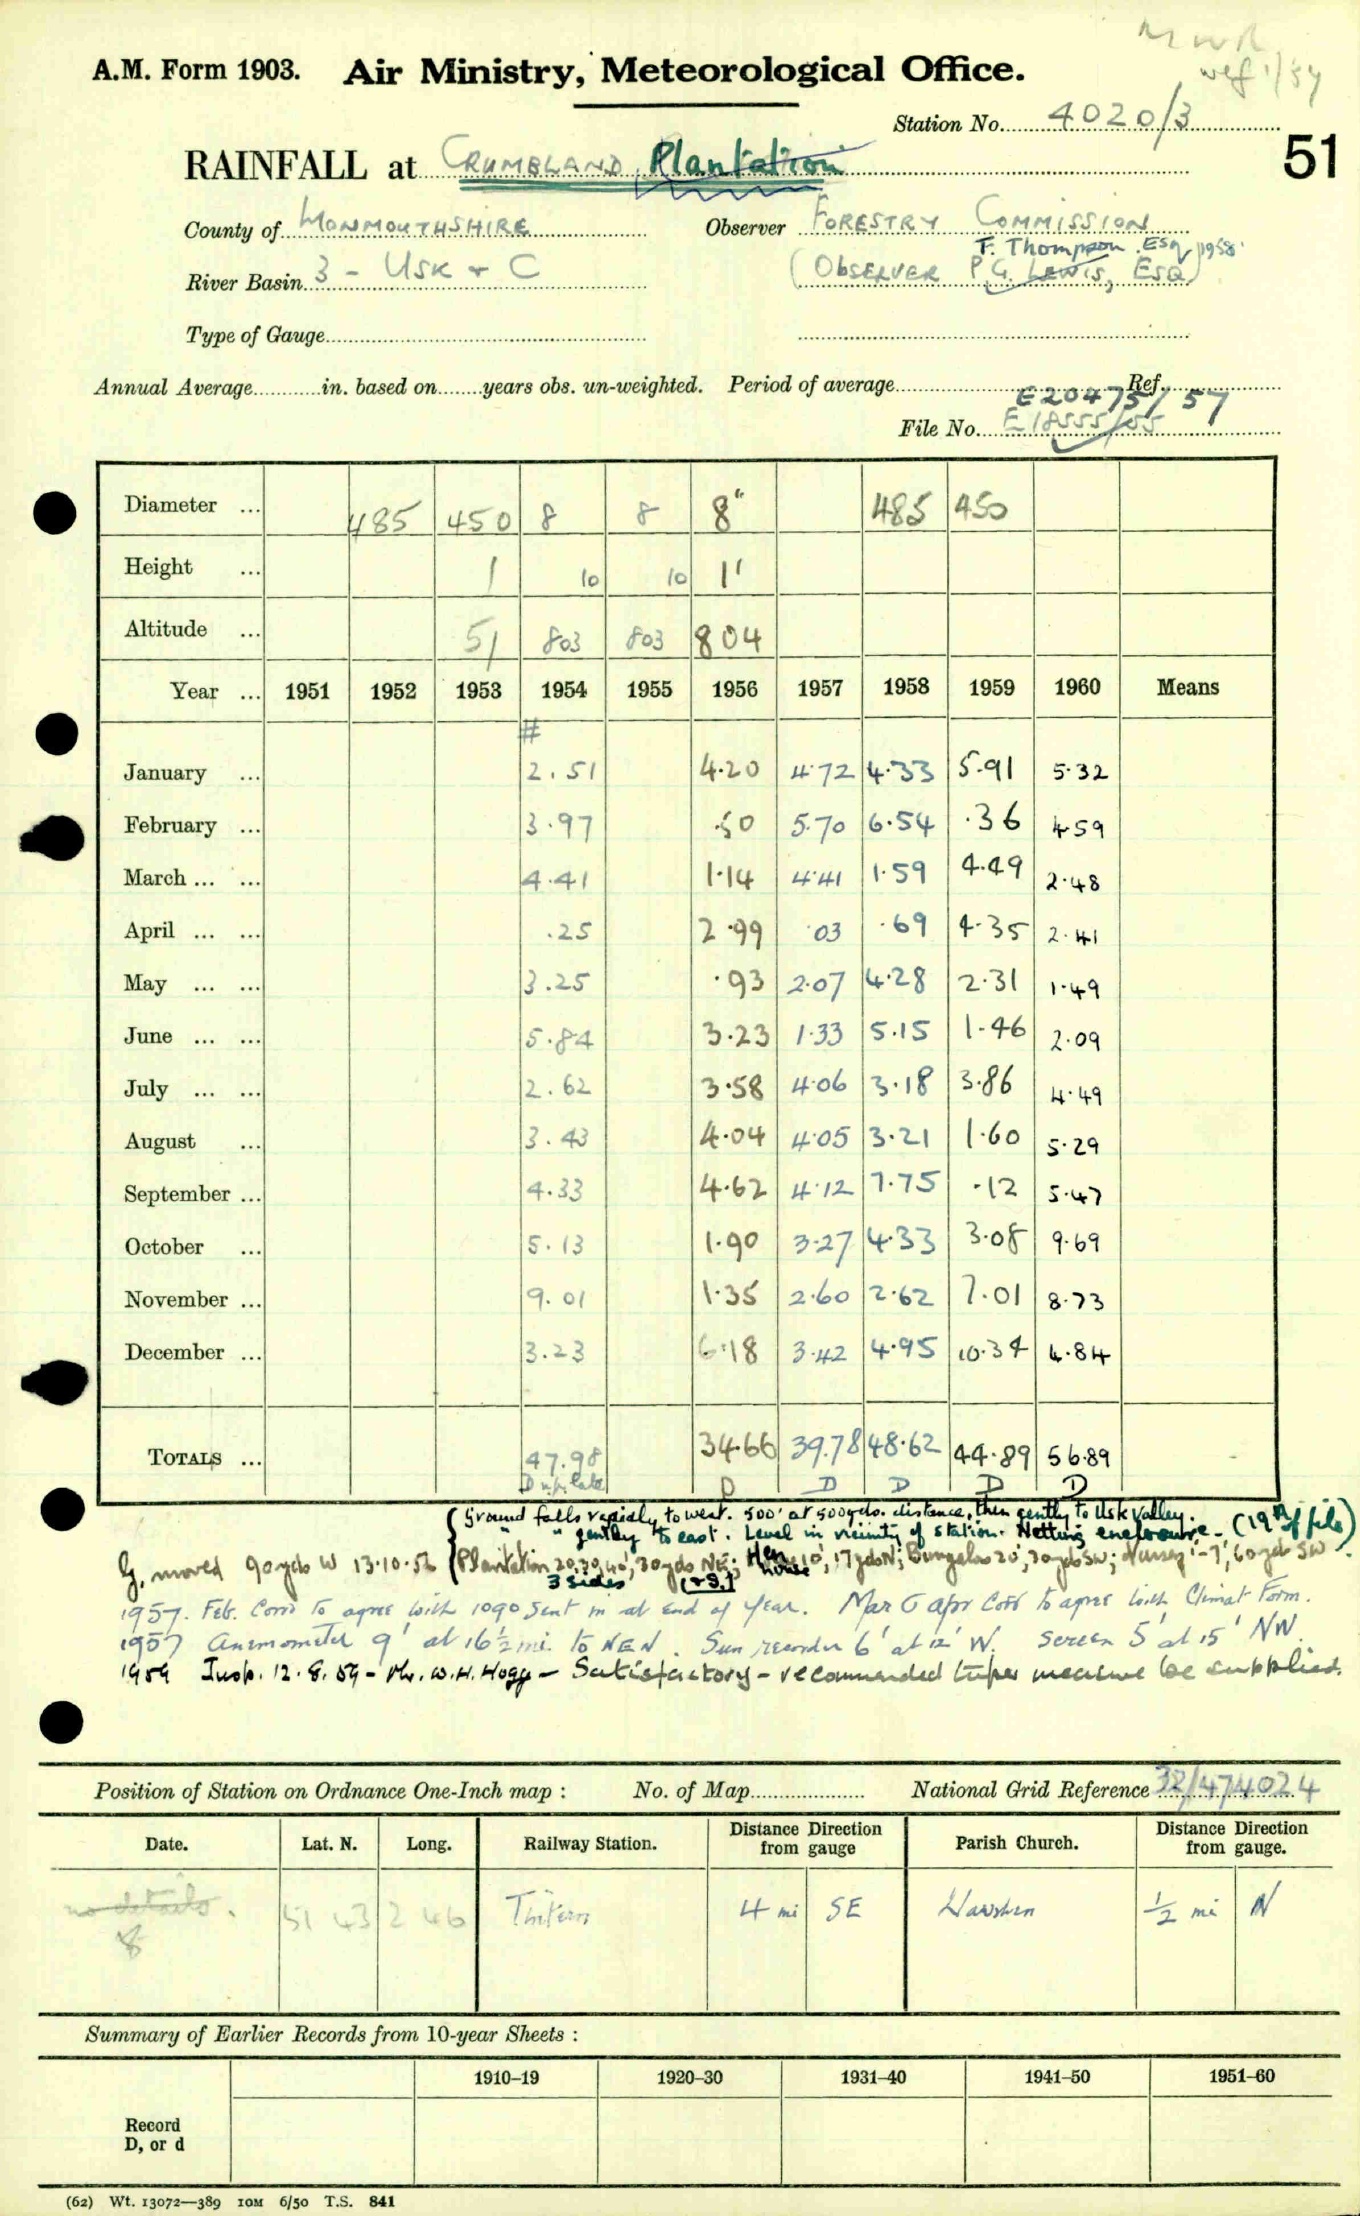 M W R
wef 1/57
A.M. Form 1903. Air Ministry, Meteorological Office.
Station No. 4020/3
51
RAINFALL at CRUMBLAND Plantation
County of MONMOUTHSHIRE Observer FORESTRY COMMISSION
T. Thompson Esq 1958
River Basin 3 - USK + C (OBSERVER P.G. LEWIS, ESQ)
Type of Gauge
Annual Average in. based on years obs. un-weighted. Period of average Ref.
E20475/57
File No. E18555/55
Diameter ... 485 450 8 8 8" 485 450
Height ... 1 10 10 1'
Altitude ... 51 803 803 804
Year ... 1951 1952 1953 1954 1955 1956 1957 1958 1959 1960 Means
#
January ... 2.51 4.20 4.72 4.33 5.91 5.32
February ... 3.97 .50 5.70 6.54 .36 4.59
March ... ... 4.41 1.14 4.41 1.59 4.49 2.48
April ... ... .25 2.99 .03 .69 4.35 2.41
May ... ... 3.25 .93 2.07 4.28 2.31 1.49
June ... ... 5.84 3.23 1.33 5.15 1.46 2.09
July ... ... 2.62 3.58 4.06 3.18 3.86 4.49
August ... 3.43 4.04 4.05 3.21 1.60 5.29
September ... 4.33 4.62 4.12 7.75 .12 5.47
October ... 5.13 1.90 3.27 4.33 3.08 9.69
November ... 9.01 1.35 2.60 2.62 7.01 8.73
December ... 3.23 6.18 3.42 4.95 10.34 4.84
TOTALS ... 47.98 34.66 39.78 48.62 44.89 56.89
Duplicate D D D D D
Ground falls rapidly to west. 500' at 500yds. distance, then gently to Usk Valley.
" " gently to east. Level in vicinity of station. Netting enclosure - (19A of file)
G. moved 90yds W 13.10.56 Plantation 20,30,40', 30yds NE; Hen house 10', 17yds N; Bungalow 20', 30yds SW; Nursery 1-7', 60yds SW
3 sides (+S.)
1957. Feb. Corrd to agree with 1090 sent in at end of year. Mar & Apr Corr to agree with Climat Form.
1957 Anemometer 9' at 16½ mi. to NEN. Sun recorder 6' at 12' W. Screen 5' at 15' NW.
1959 Insp. 12.8.59 - Mr. W.H. Hogg - Satisfactory - recommended taper measure be supplied.
Position of Station on Ordnance One-Inch map : No. of Map National Grid Reference 32/474024
Date. Lat. N. Long. Railway Station. Distance from Direction gauge Parish Church. Distance from Direction gauge.
no details. 51 43 2 46 Tintern 4 mi SE ½ mi N
8
Summary of Earlier Records from 10-year Sheets :
1910–19 1920–30 1931–40 1941–50 1951–60
Record
D, or d
(62) Wt. 13072—389 10M 6/50 T.S. 841